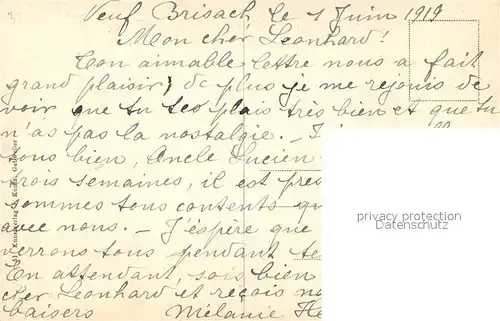 Neuf Brisach, le 1 Juin 1919
Mon cher Leonhard!
Ton aimable lettre nous a fait
grand plaisir, de plus je me rejouis de
voir que tu tes plais très bien et que tu
n'as pas la nostalgie. _
tous bien, Oncle Lucien
trois semaines, il est
sommes tous contents
avec nous. _ J'éspère que
verrons tous pendant
En attendant, sois bien
cher Leonhard et reçois
baisers Mélanie
privacy protection
datenschutz